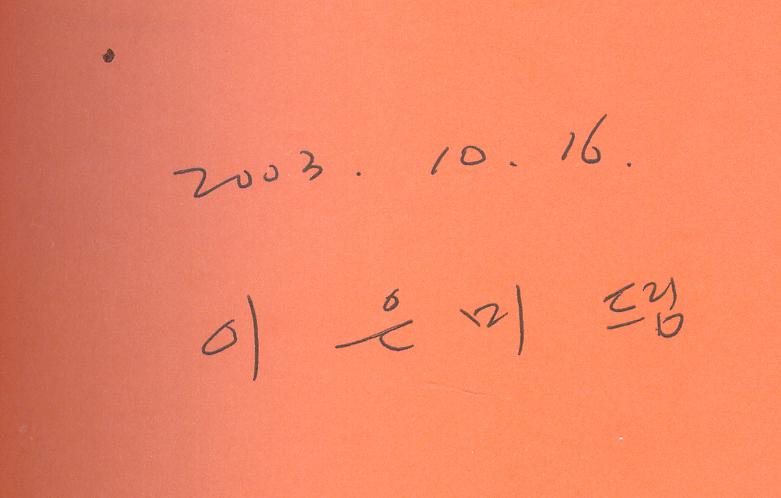 2003. 10. 16.
이 은 미 드림